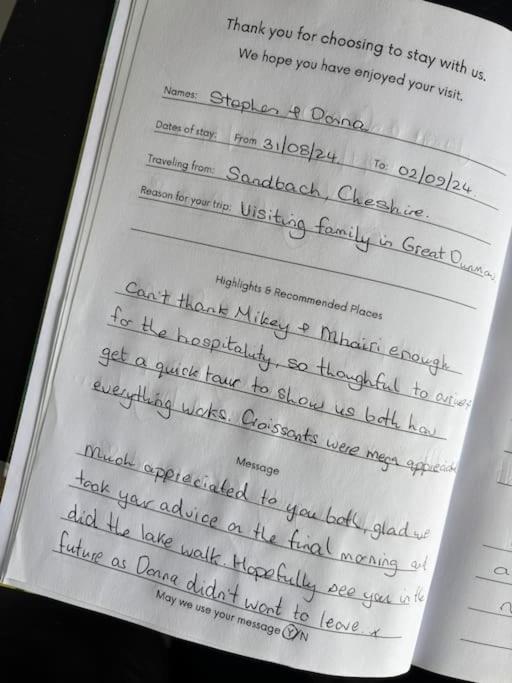 Thank you for choosing to stay with us.
We hope you have enjoyed your visit.
Names: Stephen & Donna
Dates of stay: From 31/08/24 To: 02/09/24.
Traveling from: Sandbach, Cheshire.
Reason for your trip: Visiting family in Great
Highlights & Recommended Places
Can't thank Mikey & Mhairi enough
for the hospitality, so thoughtful to arrive &
get a quick tour to show us both how
everything works. Croissants were mega
Message
Much appreciated to you both, glad we
took your advice on the final morning and
did the lake walk. Hopefully see you in the
future as Donna didn't want to leave. x
May we use your message Y/N
a